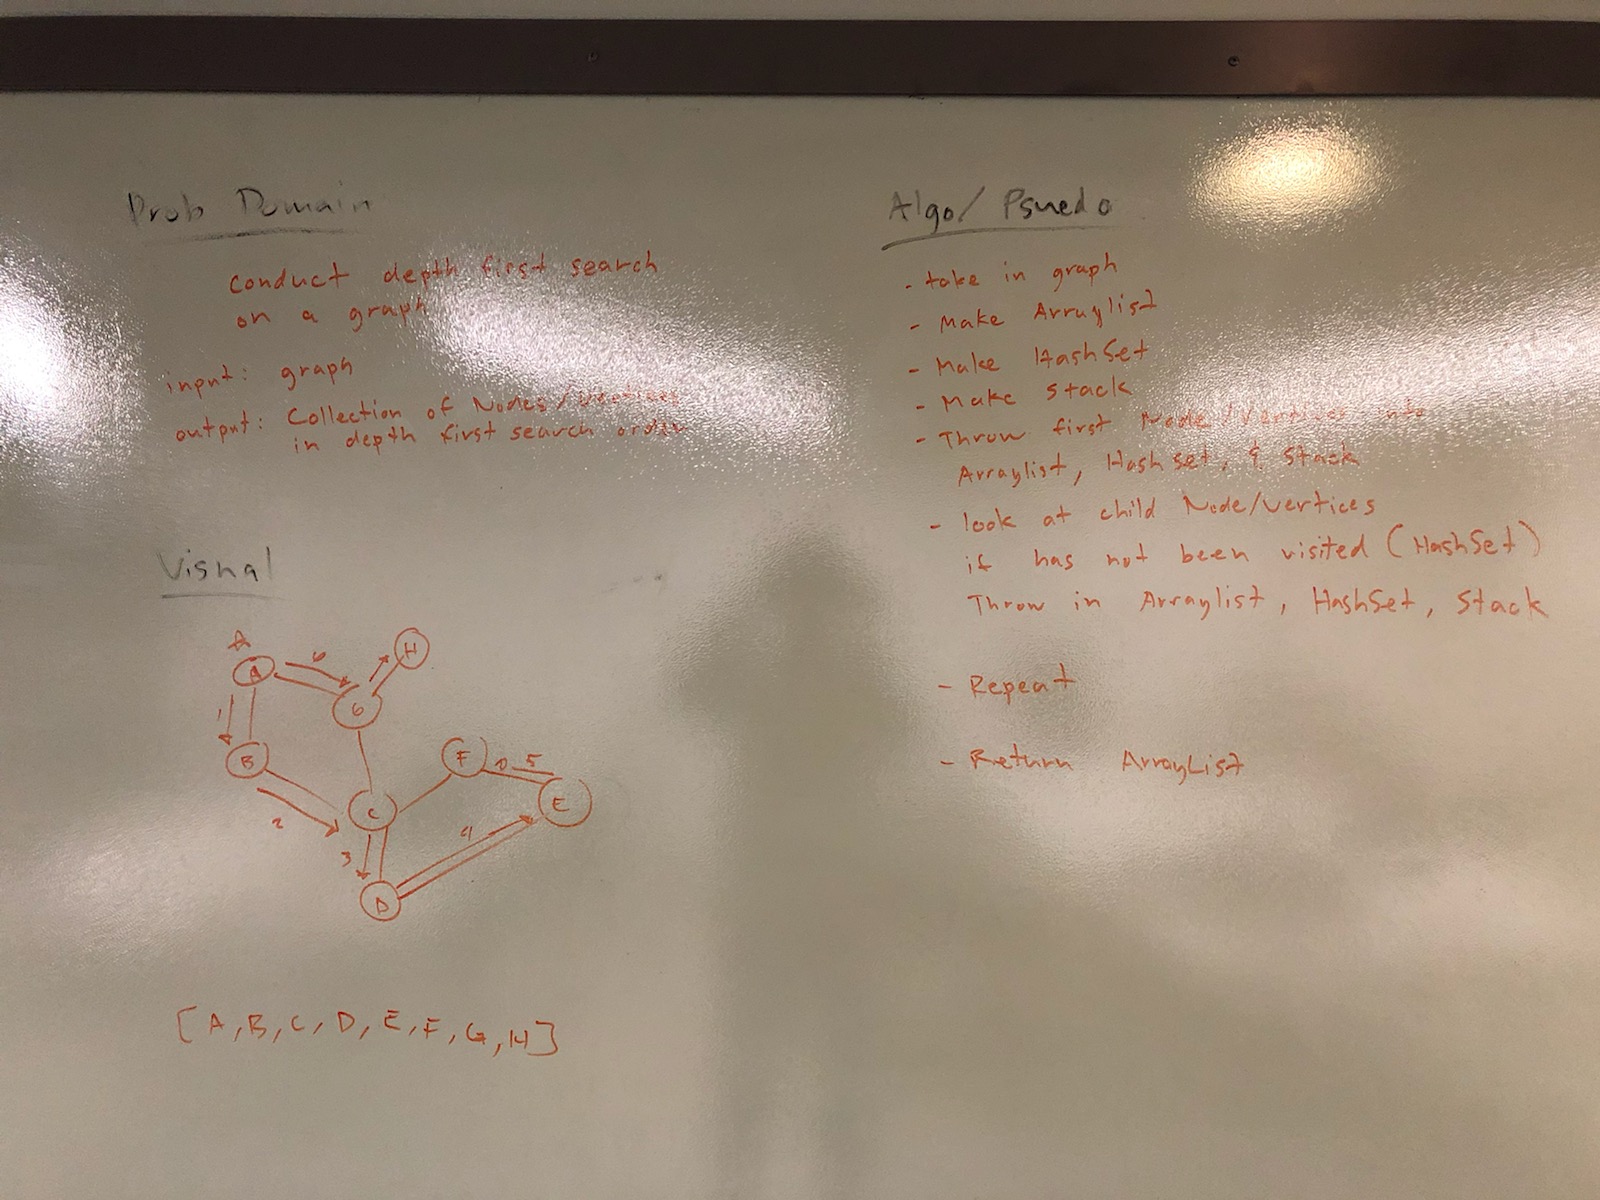 Prob Domain
Conduct depth first search
on a graph
input: graph
output: Collection of Nodes/Vertices
in depth first search order
Visual
A
A
6
H
G
1
B
F
5
E
C
2
3
4
D
[A, B, C, D, E, F, G, H]
Algo/Psuedo
- take in graph
- Make Arraylist
- Make HashSet
- Make Stack
- Throw first Node/Vertices into
Arraylist, Hashset, & Stack
- look at child Node/vertices
if has not been visited (HashSet)
Throw in Arraylist, HashSet, Stack
- Repeat
- Return ArrayList